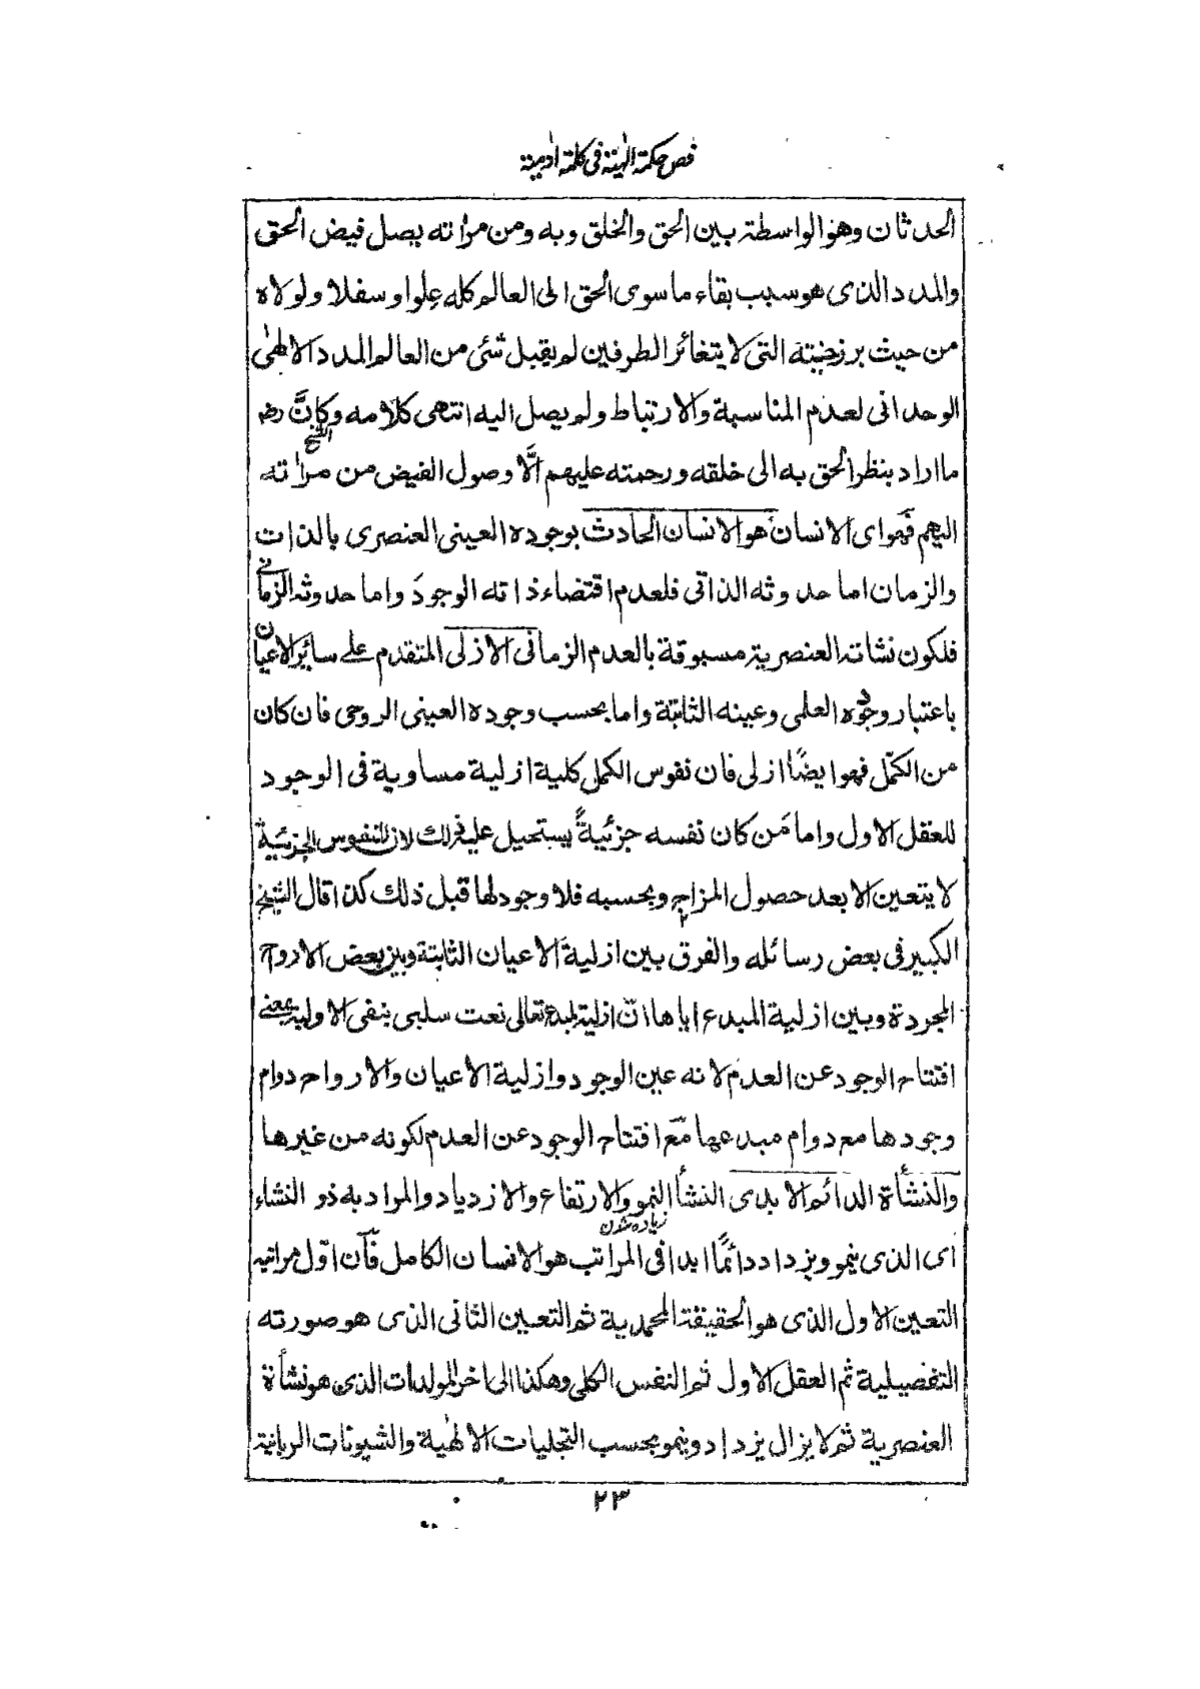 فص حكمة الٰهية فى كلمة اٰدمية
الحدثان وهو الواسطة بين الحق والخلق وبه ومن مراٰته يصل فيض الحق
والمدد الذى هو سبب بقاء ما سوى الحق الى العالم كله علوا وسفلا ولولاه
من حيث برزخيته التى لا يتغائر الطرفين لم يقبل شئ من العالم المدد الالهٰى
الوحدانى لعدم المناسبة والارتباط ولم يصل اليه انتهى كلامه وكانَّ الشيخ رضه
ما اراد بنظر الحق به الى خلقه ورحمته عليهم الَّا وصول الفيض من مراٰته
اليهم فهو اى الانسان هو الانسان الحادث بوجوده العينى العنصرى بالذات
والزمان اما حدوثه الذاتى فلعدم اقتضاء ذاته الوجود واما حدوثه الزمانى
فلكون نشاته العنصرية مسبوقة بالعدم الزمانى الازلى المتقدم على سائر الاعيان
باعتبار وجوده العلمى وعينه الثابتة واما بحسب وجوده العينى الروحى فان كان
من الكمّل فهو ايضًا ازلى فان نفوس الكمل كلية ازلية مساوية فى الوجود
للعقل الاول واما مَن كان نفسه جزئيةً يستحيل عليه ذلك لان النفوس الجزئية
لا يتعين الا بعد حصول المزاج وبحسبه فلا وجود لها قبل ذلك كذا قال الشيخ
الكبير فى بعض رسائله والفرق بين ازلية الاعيان الثابتة وبين بعض الارواح
المجردة وبين ازلية المبدع اياها انّ ازلية المبدع تعالى نعت سلبى ينفى الاولية بمعنى
افتتاح الوجود عن العدم لانه عين الوجود وازلية الاعيان والارواح دوام
وجودها مع دوام مبدعها مع افتتاح الوجود عن العدم لكونه من غيرها
والنشأة الدائم الابدى النشأ النمو والارتفاع والازدياد والمراد به ذو النشاء
زياده شدن
اى الذى ينمو ويزداد دائمًا ابدا فى المراتب هو الانسان الكامل فآن اوّل مراتبه
التعين الاول الذى هو الحقيقة المحمدية ثم التعين الثانى الذى هو صورته
التفصيلية ثم العقل الاول ثم النفس الكلى وهكذا الى اخر المولدات الذى هو نشأة
العنصرية ثم لا يزال يزداد وينمو بحسب التجليات الالهٰية والشيونات الربانية
٢٣